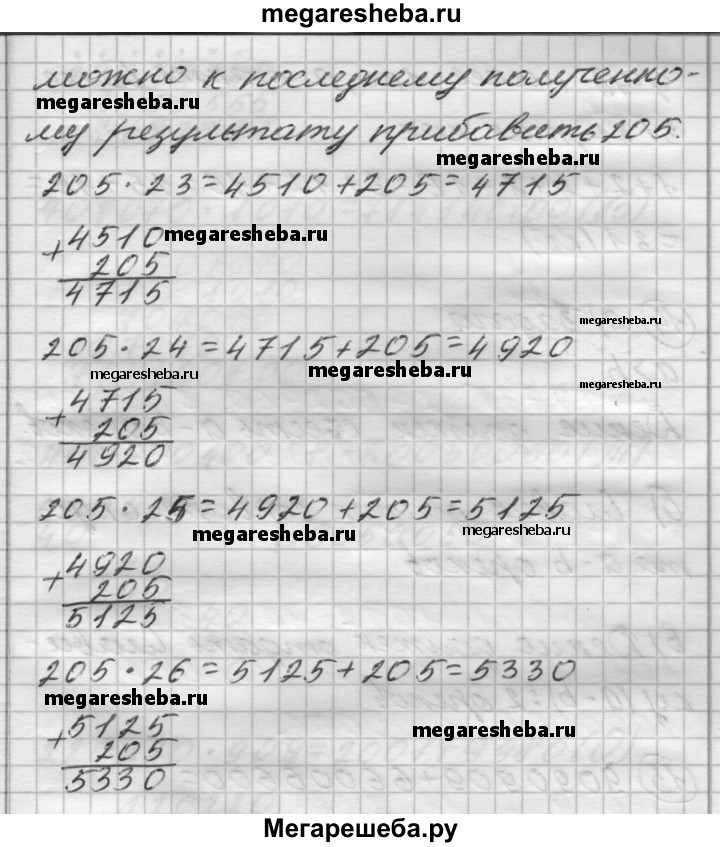 megaresheba.ru
можно к последнему полученно-
megaresheba.ru
му результату прибавить 205.
megaresheba.ru
205 · 23 = 4510 + 205 = 4715
+ 4510 megaresheba.ru
205
4715
megaresheba.ru
205 · 24 = 4715 + 205 = 4920
megaresheba.ru megaresheba.ru megaresheba.ru
+ 4715
205
4920
205 · 25 = 4920 + 205 = 5125
megaresheba.ru megaresheba.ru
+ 4920
205
5125
205 · 26 = 5125 + 205 = 5330
megaresheba.ru
+ 5125 megaresheba.ru
205
5330
Мегарешеба.ру